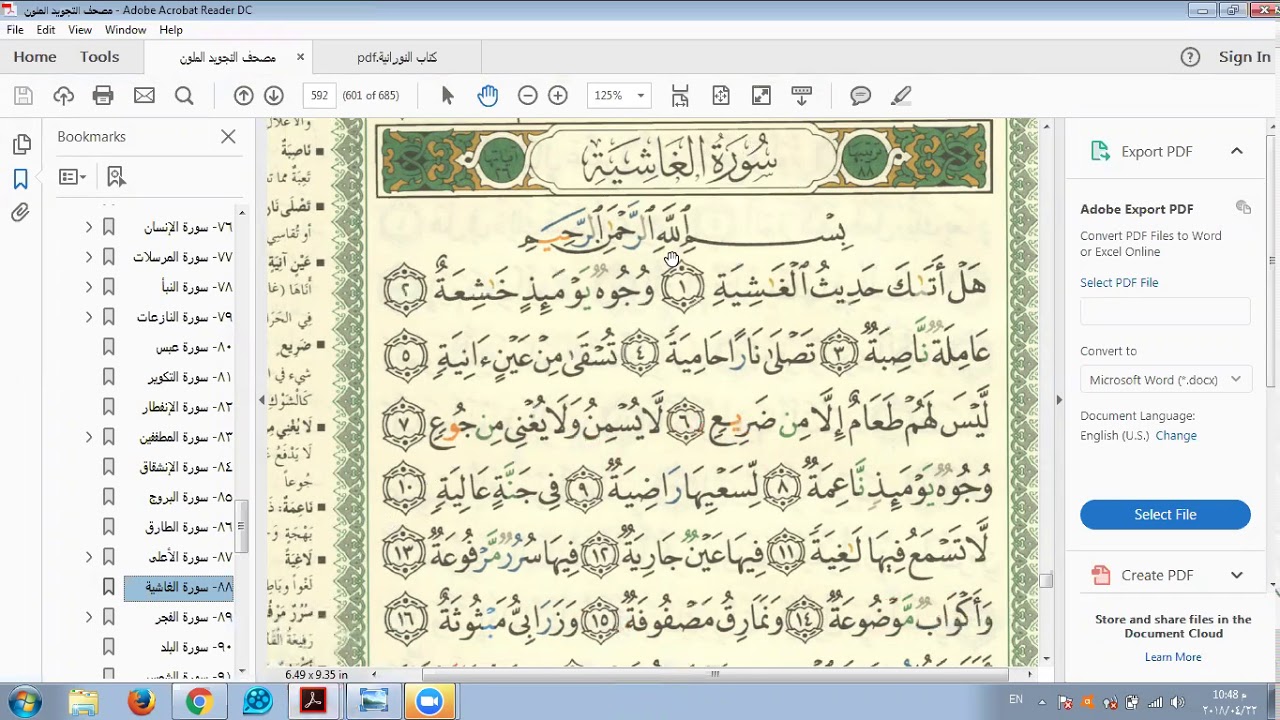 مصحف التجويد الملون - Adobe Acrobat Reader DC
File Edit View Window Help
Home Tools مصحف التجويد الملون × كتاب النورانية.pdf Sign In
592 (601 of 685) 125%
Bookmarks
٧٦- سورة الإنسان
٧٧- سورة المرسلات
٧٨- سورة النبأ
٧٩- سورة النازعات
٨٠- سورة عبس
٨١- سورة التكوير
٨٢- سورة الإنفطار
٨٣- سورة المطففين
٨٤- سورة الإنشقاق
٨٥- سورة البروج
٨٦- سورة الطارق
٨٧- سورة الأعلى
٨٨- سورة الغاشية
٨٩- سورة الفجر
٩٠- سورة البلد
سُورَةُ الغَاشِيَةِ
بِسْمِ ٱللَّهِ ٱلرَّحْمَٰنِ ٱلرَّحِيمِ
هَلْ أَتَىٰكَ حَدِيثُ ٱلْغَٰشِيَةِ ١ وُجُوهٌ يَوْمَئِذٍ خَٰشِعَةٌ ٢
عَامِلَةٌ نَّاصِبَةٌ ٣ تَصْلَىٰ نَارًا حَامِيَةً ٤ تُسْقَىٰ مِنْ عَيْنٍ ءَانِيَةٍ ٥
لَّيْسَ لَهُمْ طَعَامٌ إِلَّا مِن ضَرِيعٍ ٦ لَّا يُسْمِنُ وَلَا يُغْنِى مِن جُوعٍ ٧
وُجُوهٌ يَوْمَئِذٍ نَّاعِمَةٌ ٨ لِّسَعْيِهَا رَاضِيَةٌ ٩ فِى جَنَّةٍ عَالِيَةٍ ١٠
لَّا تَسْمَعُ فِيهَا لَٰغِيَةً ١١ فِيهَا عَيْنٌ جَارِيَةٌ ١٢ فِيهَا سُرُرٌ مَّرْفُوعَةٌ ١٣
وَأَكْوَابٌ مَّوْضُوعَةٌ ١٤ وَنَمَارِقُ مَصْفُوفَةٌ ١٥ وَزَرَابِىُّ مَبْثُوثَةٌ ١٦
6.49 x 9.35 in
Export PDF
Adobe Export PDF
Convert PDF Files to Word
or Excel Online
Select PDF File
Convert to
Microsoft Word (*.docx)
Document Language:
English (U.S.) Change
Select File
Create PDF
Store and share files in the
Document Cloud
Learn More
EN
10:48 م
٢٠١٨/٠٤/٢٢